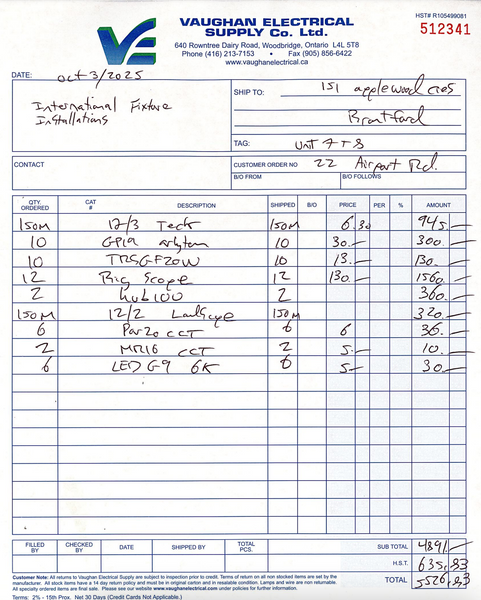 VAUGHAN ELECTRICAL
SUPPLY Co. Ltd.
640 Rowntree Dairy Road, Woodbridge, Ontario L4L 5T8
Phone (416) 213-7153 • Fax (905) 856-6422
www.vaughanelectrical.ca
HST# R105499081
512341
DATE: Oct 3/2025
International Fixture
Installations
SHIP TO: 151 applewood cres
Brantford
TAG: Unit 7+8
CONTACT
CUSTOMER ORDER NO 22 Airport Rd.
B/O FROM B/O FOLLOWS
QTY. ORDERED CAT # DESCRIPTION SHIPPED B/O PRICE PER % AMOUNT
150M 12/3 Teck 150M 6.30 945.—
10 GP19 10 30.— 300.—
10 TRSGF20W 10 13.— 130.—
12 Rig Scope 12 130.— 1560.—
2 Kub100 2 360.—
150M 12/2 150M 320.—
6 Par20 CCT 6 6 36.—
2 MR16 CCT 2 5.— 10.—
6 LED G9 6K 6 5.— 30.—
FILLED BY CHECKED BY DATE SHIPPED BY TOTAL PCS.
SUB TOTAL 4891.—
H.S.T. 635.83
TOTAL 5526.83
Customer Note: All returns to Vaughan Electrical Supply are subject to inspection prior to credit. Terms of return on all non stocked items are set by the
manufacturer. All stock items have a 14 day return policy and must be in original carton and in resalable condition. Lamps and wire are non-returnable.
All specialty ordered items are final sale. Please see our website www.vaughanelectrical.com under policies for further information.
Terms: 2% - 15th Prox. Net 30 Days (Credit Cards Not Applicable.)